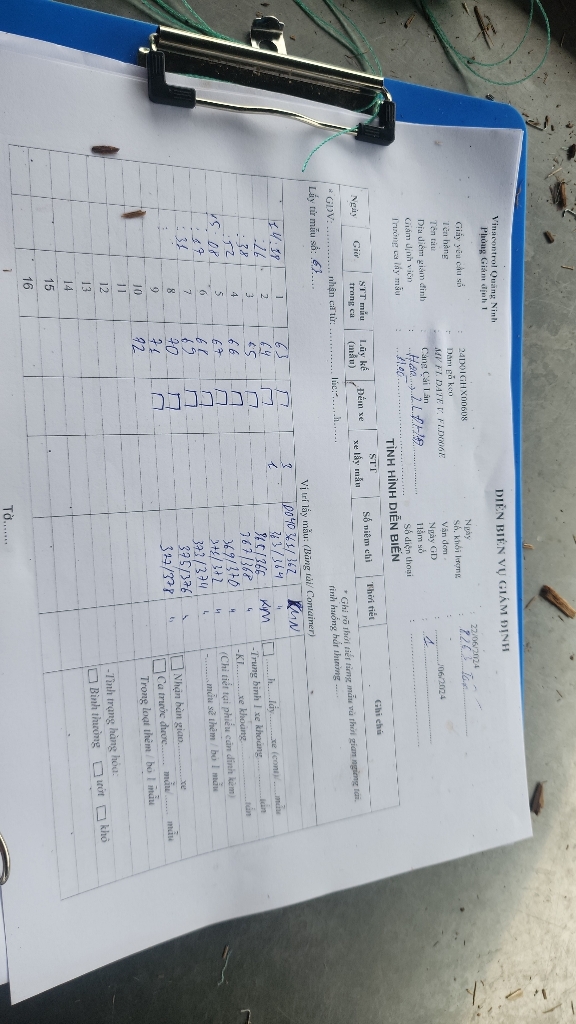 Vinacontrol Quảng Ninh
Phòng Giám định 1
DIỄN BIẾN VỤ GIÁM ĐỊNH
Giấy yêu cầu số : 24D01GHX00608 Ngày : 22/06/2024
Tên hàng : Dăm gỗ keo Số, khối lượng :
Tên tàu : MV FLDATE V. FLD006E Vận đơn :
Địa điểm giám định : Cảng Cái Lân Ngày GD : /06/2024
Giám định viên : Hầm số : 1
Trưởng ca lấy mẫu : Số điện thoại :
TÌNH HÌNH DIỄN BIẾN
* Ghi rõ thời tiết từng mẫu và thời gian ngừng tải
tình huống bất thường
Ngày Giờ STT mẫu trong ca Lũy kế (mẫu) Đếm xe STT xe lấy mẫu Số niêm chì Thời tiết Ghi chú
* GĐV: nhận ca từ: lúc: h
Lấy từ mẫu số: 63 Vị trí lấy mẫu: (Băng tải/ Container)
1 63 3
2 64 1 363/364 "
3 65 365/366
4 66 367/368 "
5 67 369/370 "
6 68 371/372 "
7 69 373/374 "
8 70 375/376 "
9 71 377/378 "
10 72
11
12
13
14
15
16
h lấy xe (cont)/ mẫu
-Trung bình 1 xe khoảng tấn
-KL xe khoảng tấn
(Chi tiết tại phiếu cân đính kèm)
- mẫu sẽ thêm / bo 1 mẫu
Nhận bàn giao: xe
Ca trước được mẫu/ mẫu
Trong loạt thêm / bo 1 mẫu
-Tình trạng hàng hóa:
Bình thường ướt khô
Tờ.......